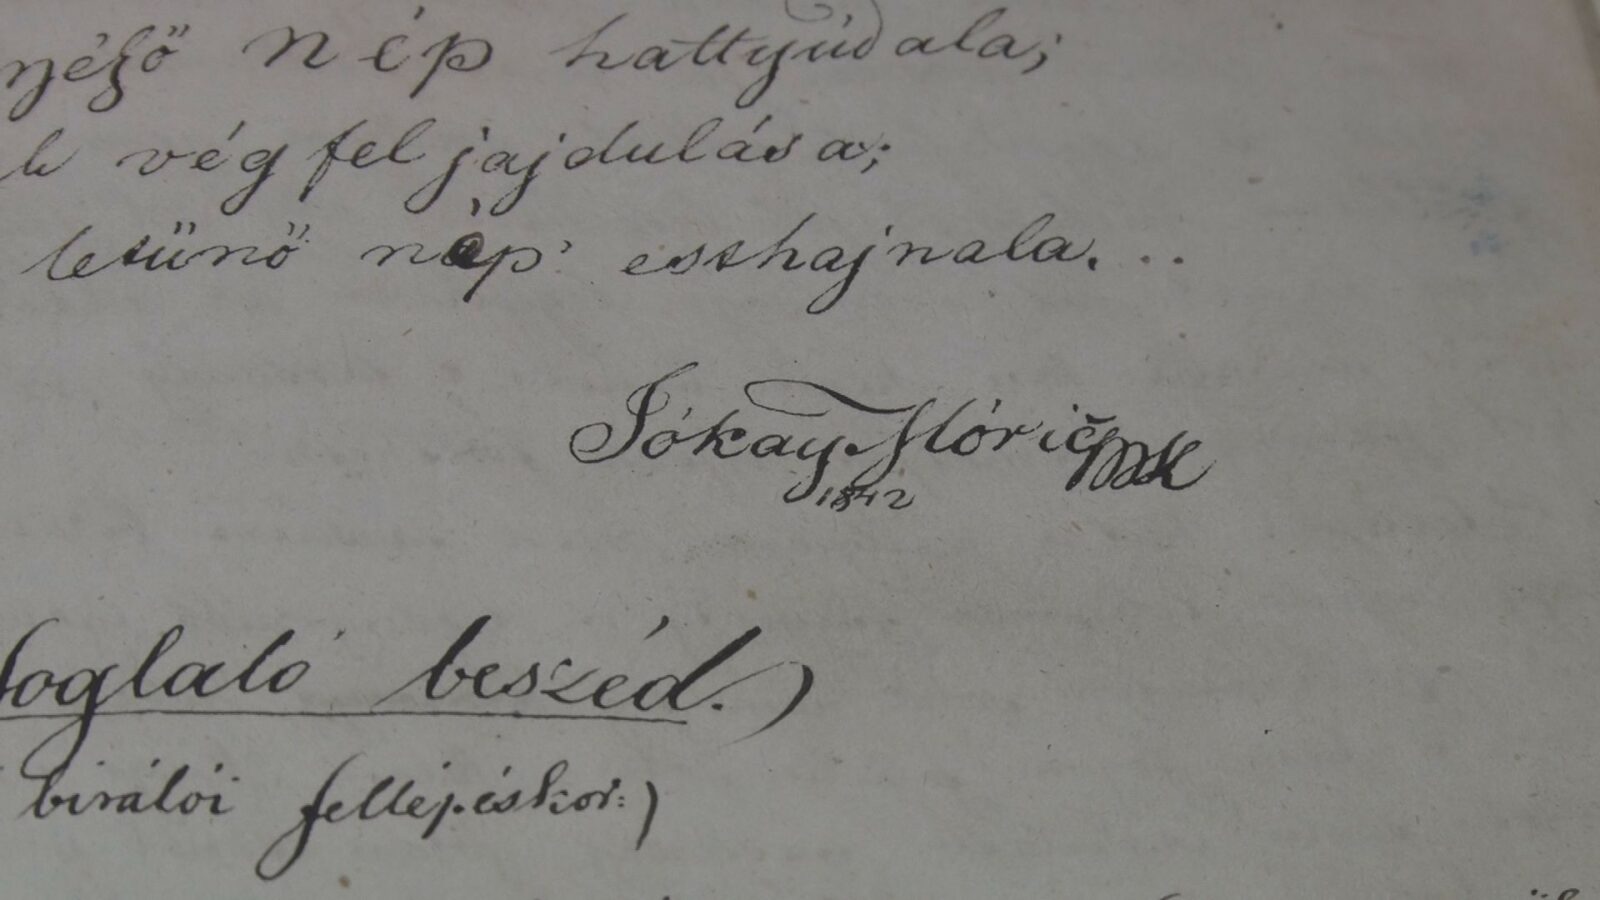 nép hattyúdala;
vég feljajdulása;
letűnő nép' esthajnala...
Jókay Móric
1842
foglaló beszéd.)
birálói felléptéskor:)